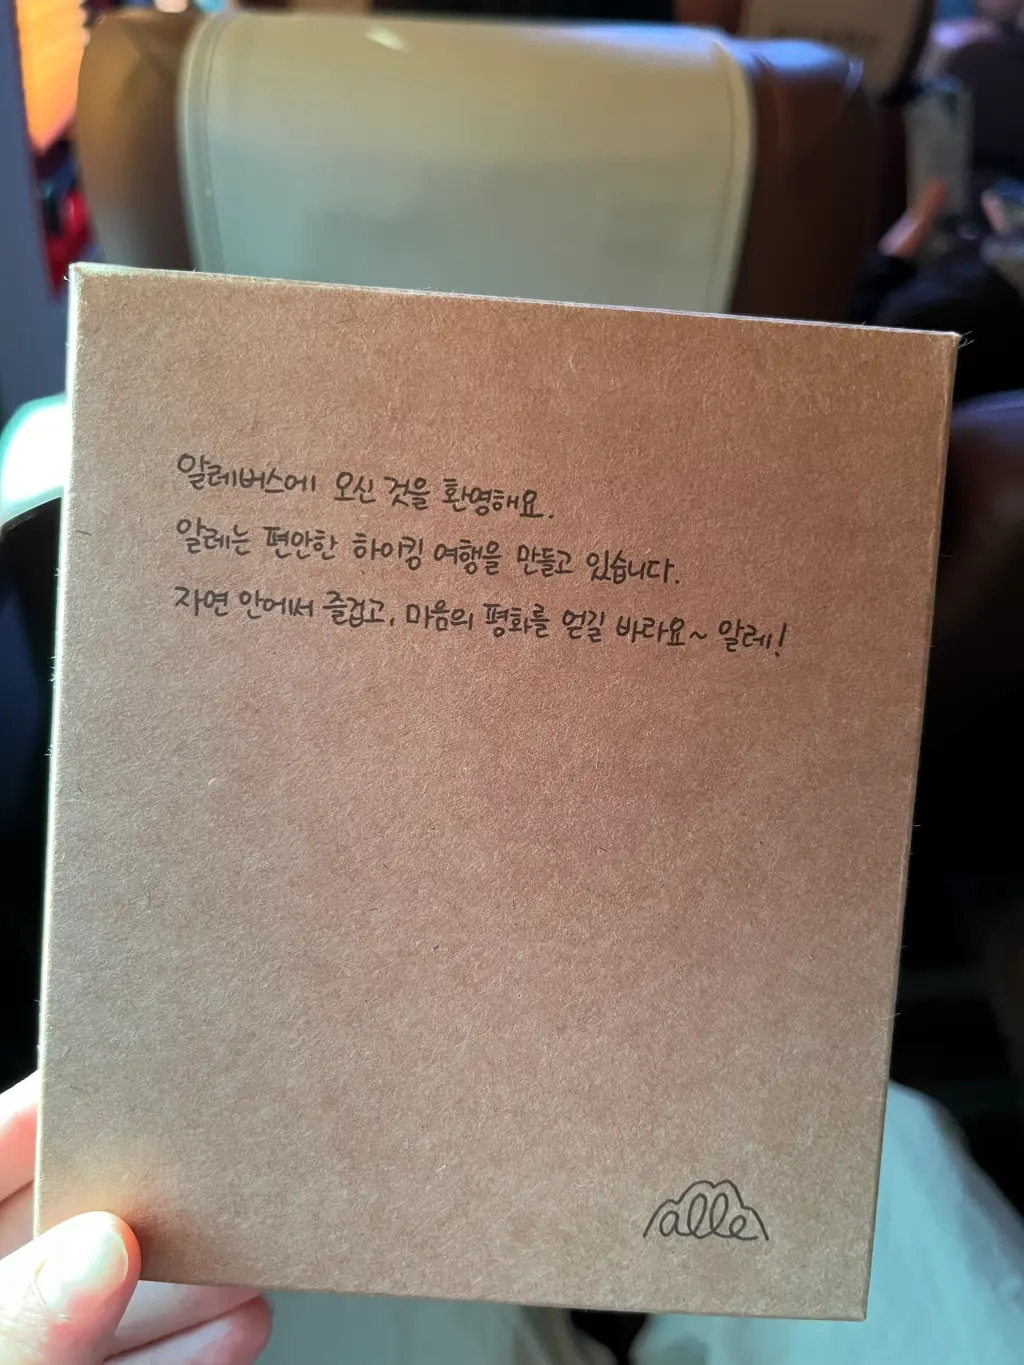 알레버스에 오신 것을 환영해요.
알레는 편안한 하이킹 여행을 만들고 있습니다.
자연 안에서 즐겁고, 마음의 평화를 얻길 바라요~ 알레!
alle